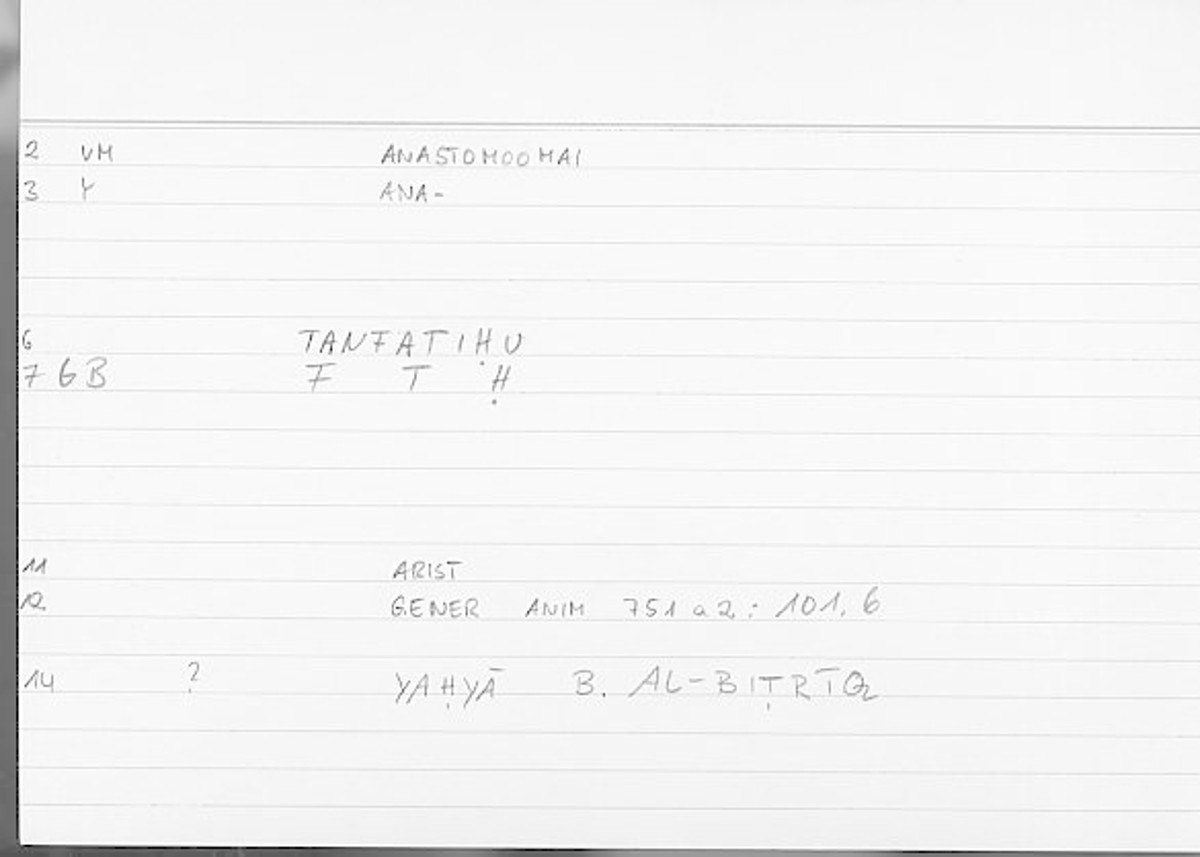 2 VM ANASTOMOOMAI
3 Y ANA-
6 TANFATIḤU
7 GB F T Ḥ
11 ARIST
12 GENER ANIM 751 a 2 : 101.6
14 ? YAḤYĀ B. AL-BIṬRĪQ